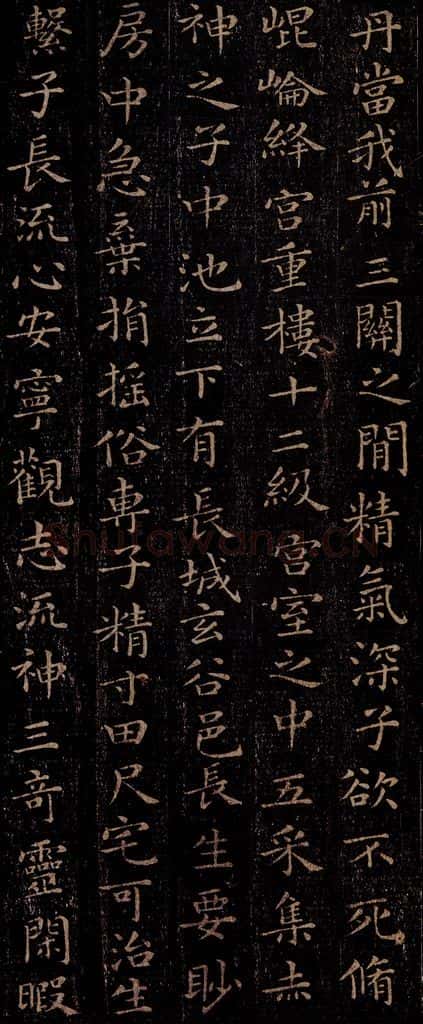 丹當我前三關之間精氣深子欲不死脩
崐崘絳宫重樓十二級宫室之中五采集赤
神之子中池立下有長城玄谷邑長生要眇
房中急棄捐搖俗專子精寸田尺宅可治生
繫子長流心安寧觀志流神三奇靈閑暇
Shufawang.CN